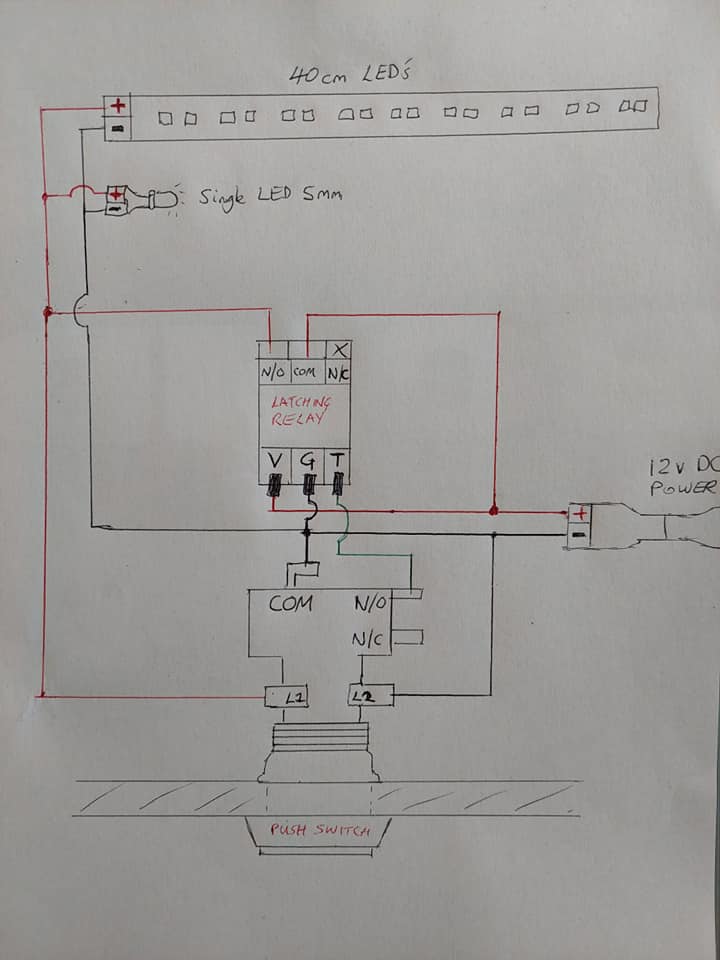 40cm LED's
+
-
+
-
Single LED 5mm
X
N/O COM N/C
LATCHING
RELAY
V G T
12v DC
POWER
+
-
COM N/O
N/C
L1 L2
PUSH SWITCH